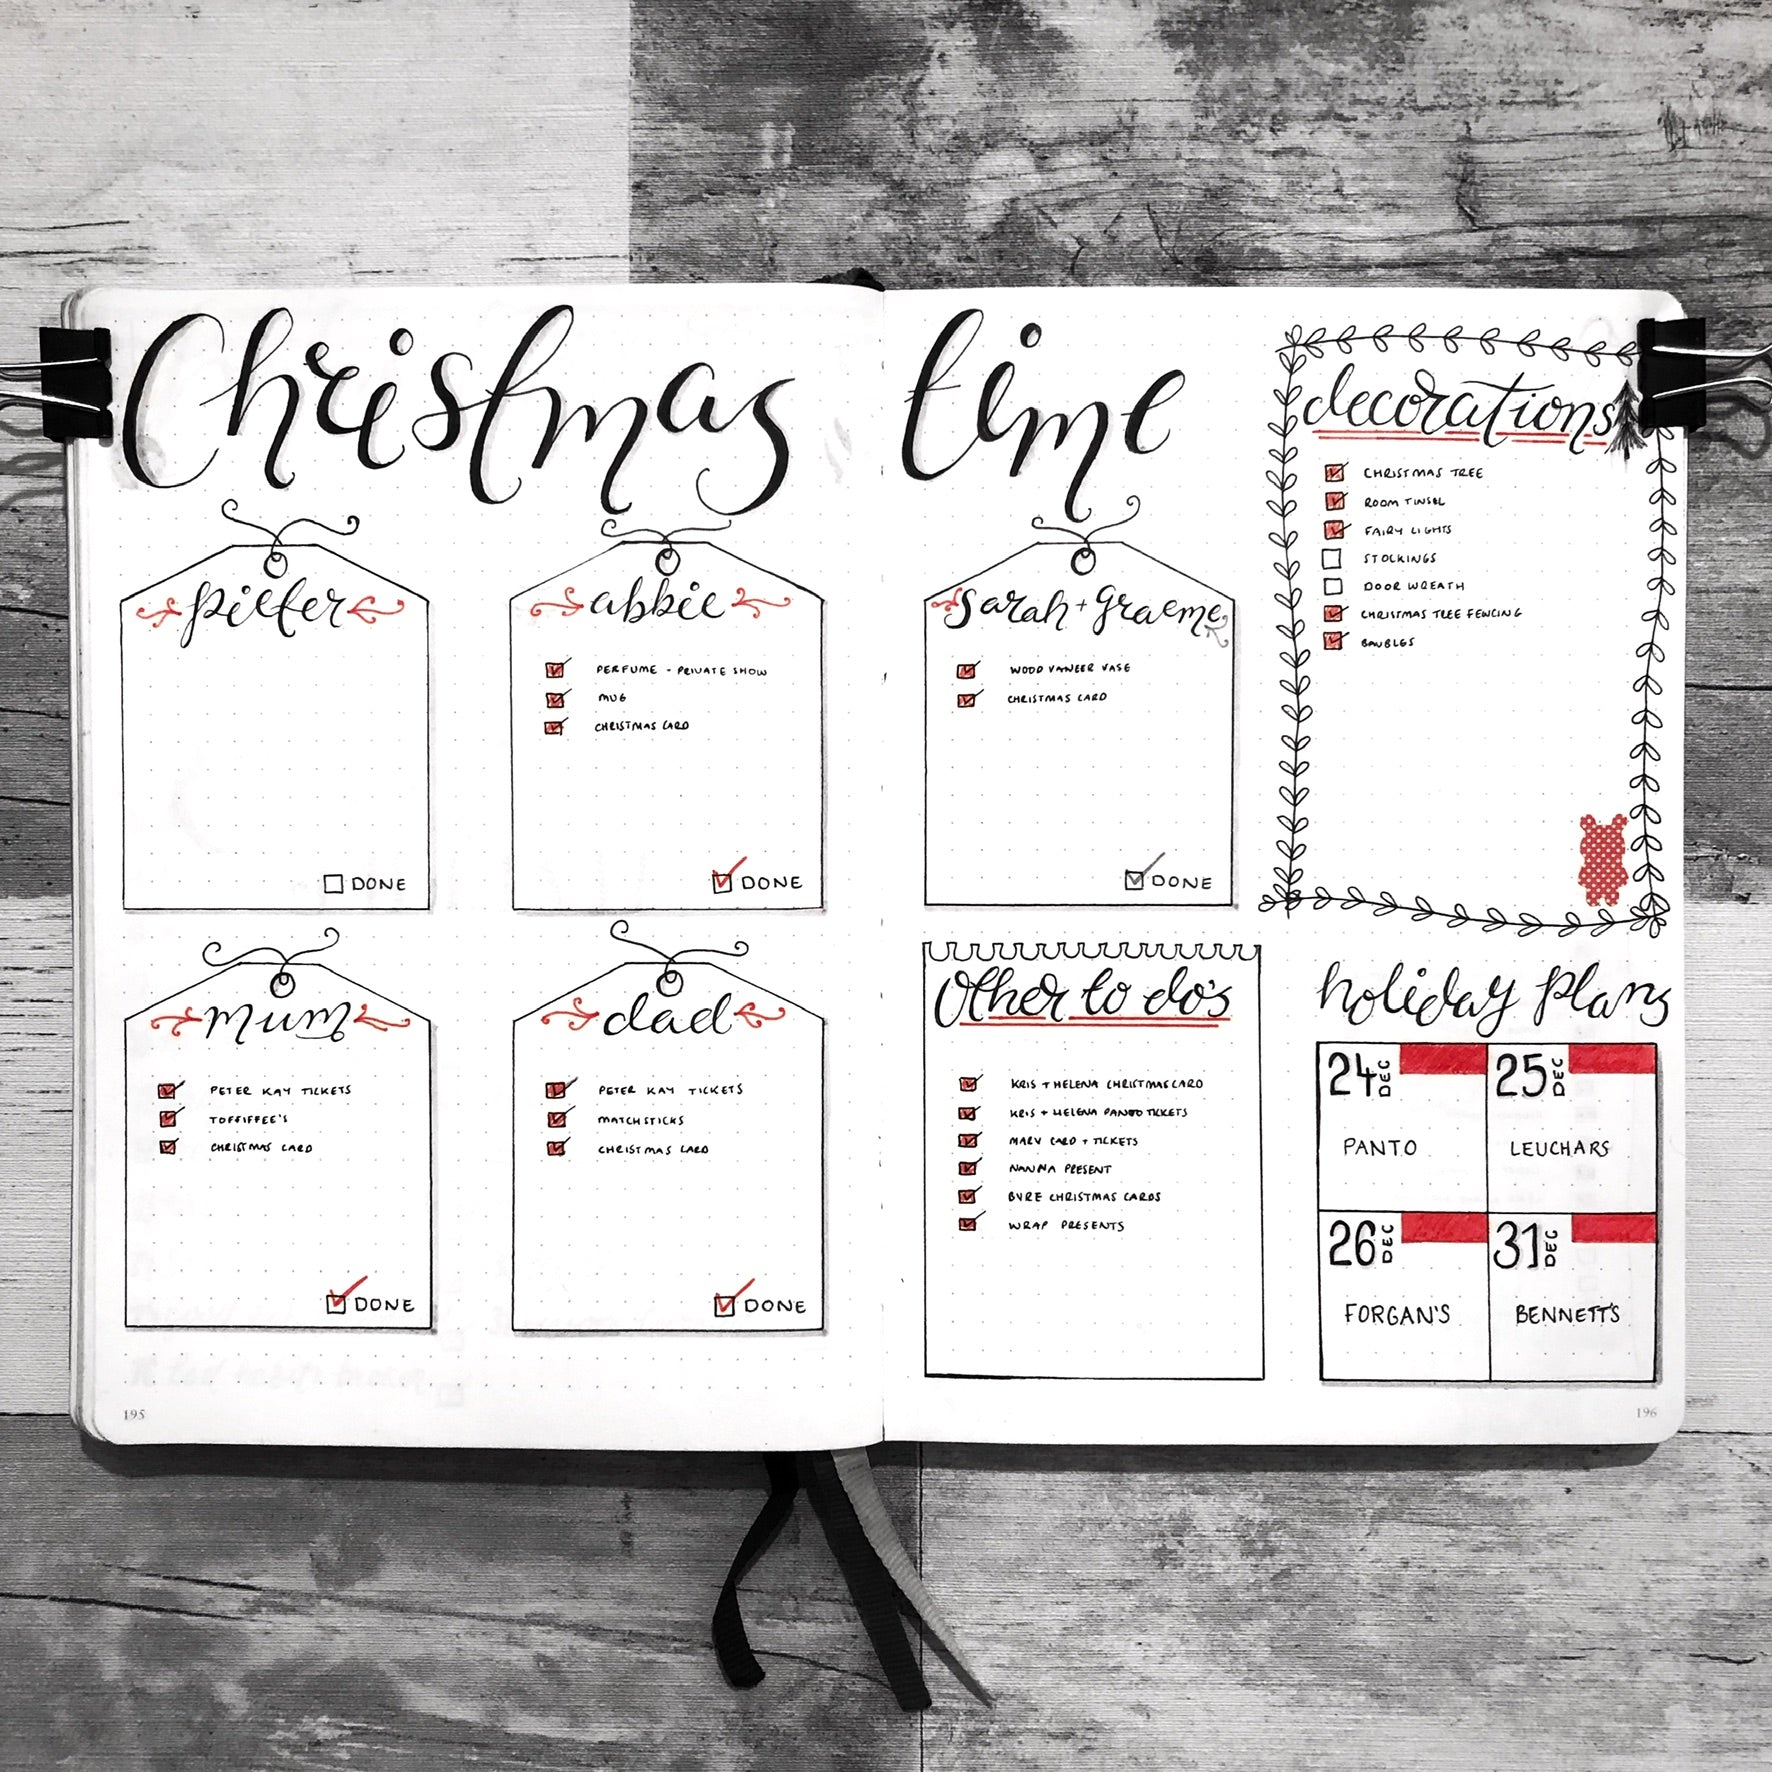 Christmas time
pieter
DONE
abbie
PERFUME - PRIVATE SHOW
MUG
CHRISTMAS CARD
DONE
mum
PETER KAY TICKETS
TOFFIFFEE'S
CHRISTMAS CARD
DONE
dad
PETER KAY TICKETS
MATCHSTICKS
CHRISTMAS CARD
DONE
195
sarah + graeme
WOOD VANEER VASE
CHRISTMAS CARD
DONE
decorations
CHRISTMAS TREE
ROOM TINSEL
FAIRY LIGHTS
STOCKINGS
DOOR WREATH
CHRISTMAS TREE FENCING
BAUBLES
Other to do's
KRIS + HELENA CHRISTMAS CARD
KRIS + HELENA PANTO TICKETS
MARV CARD + TICKETS
NANNA PRESENT
BVRE CHRISTMAS CARDS
WRAP PRESENTS
holiday plans
24 DEC
PANTO
25 DEC
LEUCHARS
26 DEC
FORGAN'S
31 DEC
BENNETT'S
196